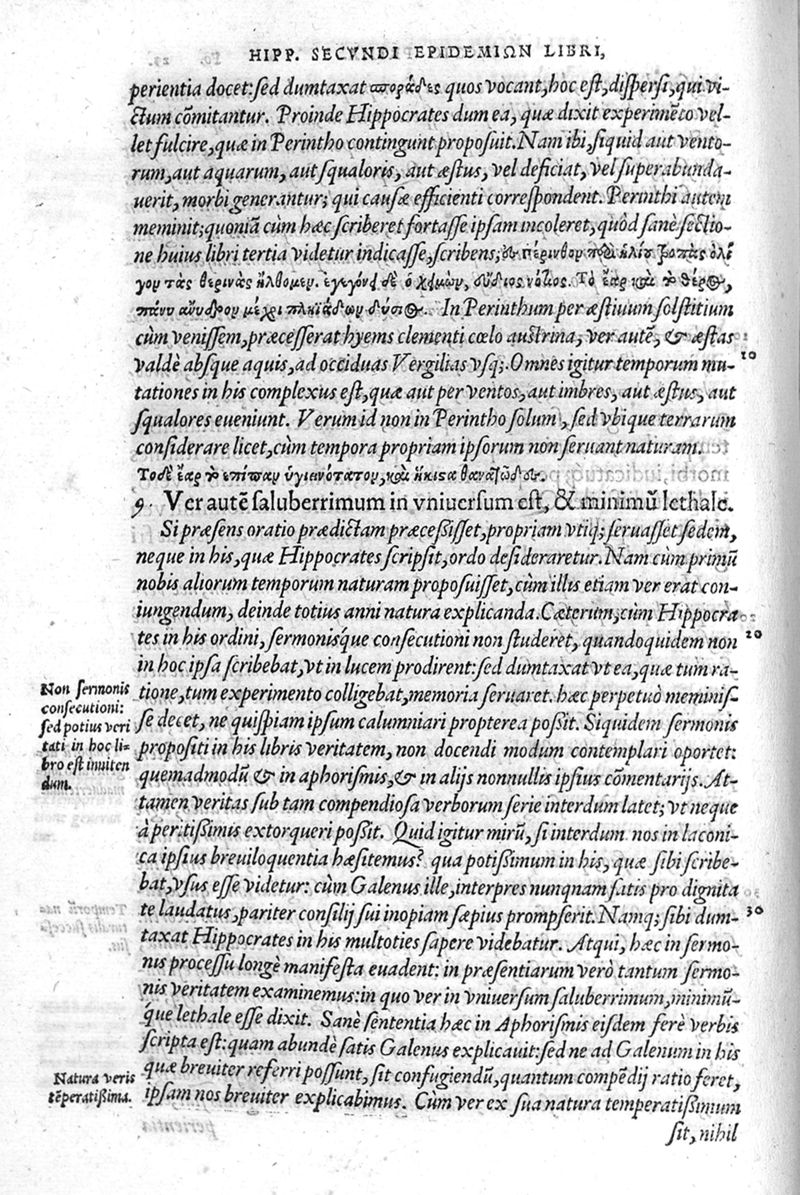 HIPP. SECVNDI EPIDEMIΩN LIBRI,
perientia docet: sed dumtaxat σποράδες quos vocant, hoc est, dispersi, qui vi-
ctum cõmitantur. Proinde Hippocrates dum ea, quæ dixit experimẽto vel-
let fulcire, quæ in Perintho contingunt proposuit. Nam ibi, siquid aut vento-
rum, aut aquarum, aut squaloris, aut æstus, vel deficiat, vel superabunda-
uerit, morbi generantur; qui causæ efficienti correspondent. Perinthi autem
meminit; quoniã cùm hæc scriberet fortasse ipsam incoleret, quòd sanè sectio-
ne huius libri tertia videtur indicasse, scribens; ἐς πέρινθον περὶ ἡλίου τροπὰς ὀλί
γου τὰς θερινὰς ἤλθομεν. ἐγεγόνει δὲ ὁ χειμὼν, εὔδιος νότιος. Τὸ ἔαρ καὶ τὸ θέρος,
πάνυ ἄνυδρον μέχρι πληϊάδων δύσιος. In Perinthum per æstiuum solstitium
cùm venissem, præcesserat hyems clementi cœlo austrina; ver autẽ, & æstas
valdè absque aquis, ad occiduas Vergilias vsq;. Omnes igitur temporum mu-
10
tationes in his complexus est, quæ aut per ventos, aut imbres, aut æstus, aut
squalores eueniunt. Verum id non in Perintho solum, sed vbique terrarum
considerare licet, cùm tempora propriam ipsorum non seruant naturam.
Τὸ δὲ ἔαρ τὸ ἐπίπαν ὑγιανότατον, καὶ ἥκιστα θανατῶδες.
9. Ver autẽ saluberrimum in vniuersum est, & minimũ lethale.
Si præsens oratio prædictam præcessisset, propriam vtiq; seruasset sedem,
neque in his, quæ Hippocrates scripsit, ordo desideraretur. Nam cùm primũ
nobis aliorum temporum naturam proposuisset, cùm illis etiam ver erat con-
iungendum, deinde totius anni natura explicanda. Cæterum, cùm Hippocra
tes in his ordini, sermonisque consecutioni non studeret, quandoquidem non
20
in hoc ipsa scribebat, vt in lucem prodirent: sed dumtaxat vt ea, quæ tum ra-
tione, tum experimento colligebat, memoria seruaret. hæc perpetuò meminis-
se decet, ne quispiam ipsum calumniari propterea possit. Siquidem sermonis
propositi in his libris veritatem, non docendi modum contemplari oportet:
quemadmodũ & in aphorismis, & in alijs nonnullis ipsius cõmentarijs. At-
tamen veritas sub tam compendiosa verborum serie interdum latet; vt neque
à peritissimis extorqueri possit. Quid igitur mirũ, si interdum nos in laconi-
ca ipsius breuiloquentia hæsitemus? qua potissimum in his, quæ sibi scribe-
bat, vsus esse videtur: cùm Galenus ille, interpres nunquam satis pro dignita
te laudatus, pariter consilij sui inopiam sæpius prompserit. Namq; sibi dum-
30
taxat Hippocrates in his multoties sapere videbatur. Atqui, hæc in sermo-
nis processu longè manifesta euadent: in præsentiarum verò tantum sermo-
nis veritatem examinemus: in quo ver in vniuersum saluberrimum, minimũ-
que lethale esse dixit. Sanè sententia hæc in Aphorismis eisdem ferè verbis
scripta est: quam abundè satis Galenus explicauit: sed ne ad Galenum in his
quæ breuiter referri possunt, sit confugiendũ, quantum compẽdij ratio feret,
ipsam nos breuiter explicabimus. Cùm ver ex sua natura temperatissimum
sit, nihil
Non sermonis
consecutioni:
sed potius veri
tati in hoc li-
bro est inniten
dum.
Natura veris
tẽperatissima.